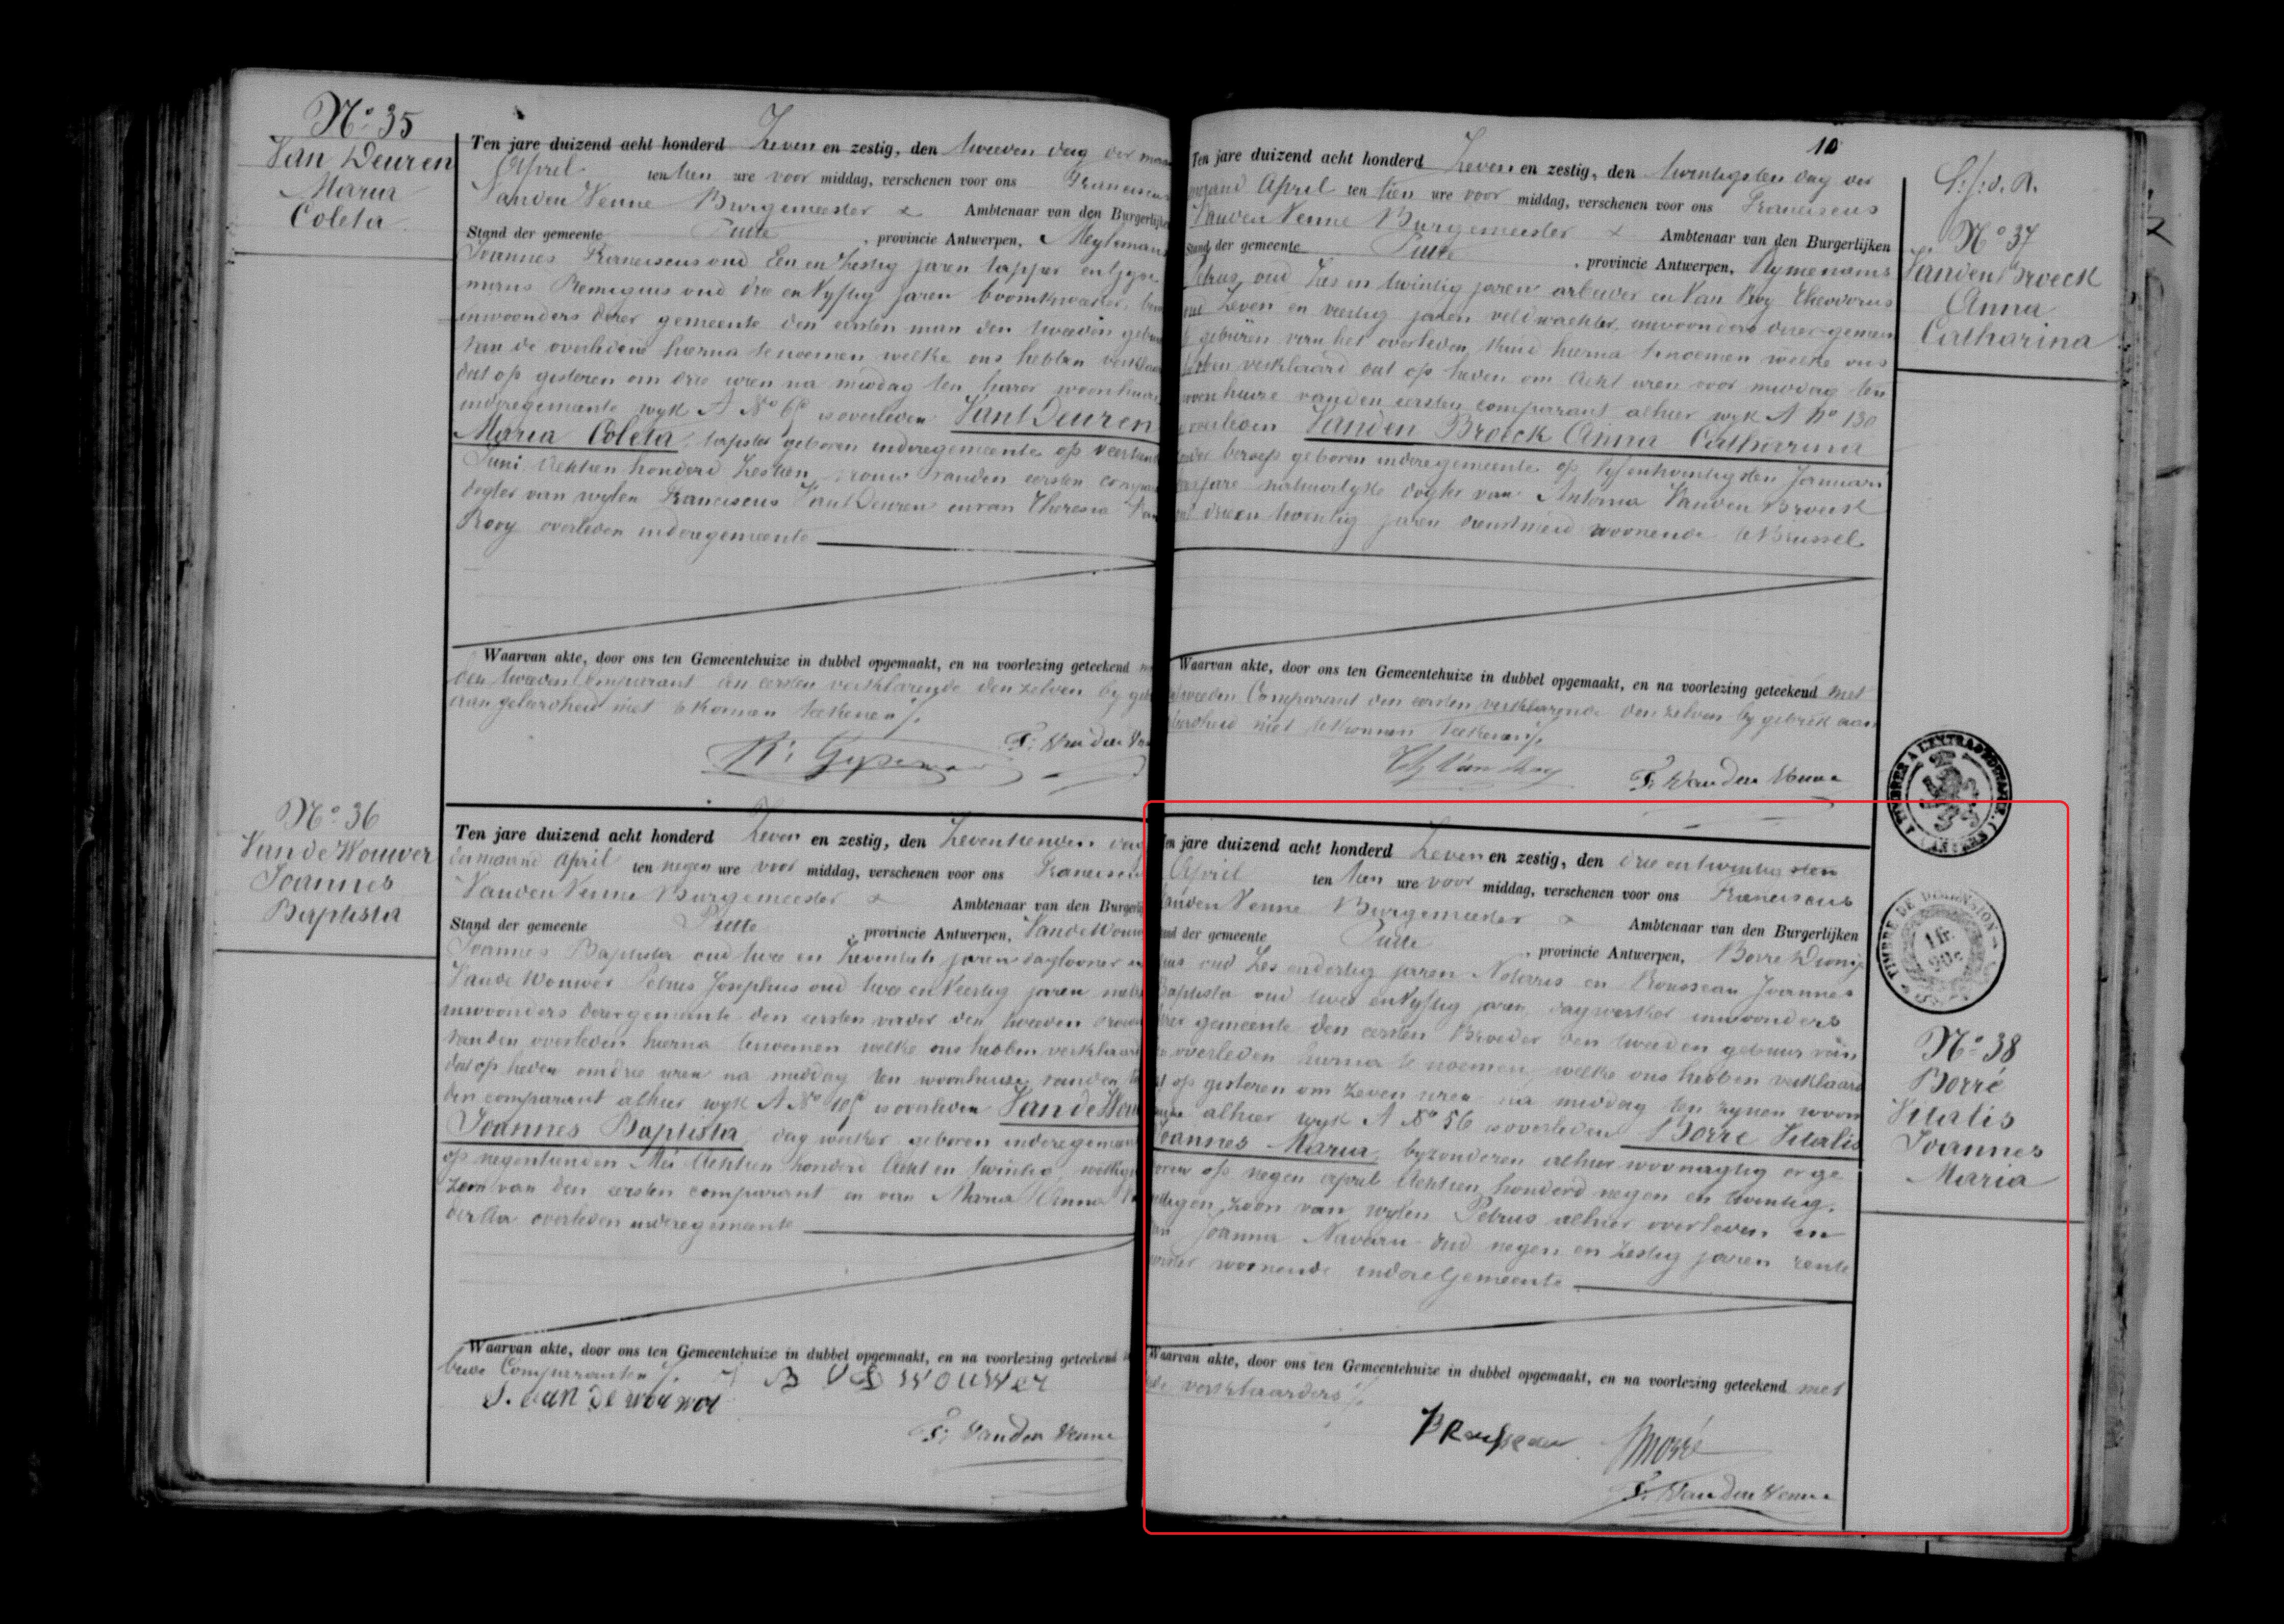 Nº 35
Van Deuren
Maria
Coleta
Ten jare duizend acht honderd Zeven en zestig, den tweeden dag der maand
April ten tien ure voor middag, verschenen voor ons Franciscus
Vanden Venne Burgemeester Ambtenaar van den Burgerlijken
Stand der gemeente Putte, provincie Antwerpen, Meylemans
Joannes Franciscus oud Een en Zestig jaren tapper en Gyse
mans Remigius oud drie en Vyftig jaren
inwoonders dezer gemeente den eersten man den tweeden gebuur
van de overledene hierna te noemen welke ons hebben verklaard
dat op gisteren om drie uren na middag ten haren woonhuize
in deze gemeente wyk A Nº is overleden Van t Deuren
Maria Coleta, tapster geboren in deze gemeente op
Juni Achttien honderd Zestien vrouw vanden eersten
dogter van wylen Franciscus Vant Deuren en van Theresia Van
Rooy overleden in deze gemeente
Waarvan akte, door ons ten Gemeentehuize in dubbel opgemaakt, en na voorlezing geteekend
den tweeden Comparant den eersten verklarende den zelven by
aan geleerdheid niet te konnen teekenen
F: Van den
Nº 36
Van de Wouwer
Joannes
Baptista
Ten jare duizend acht honderd Zeven en zestig, den Zeventienden dag
der maand April ten negen ure voor middag, verschenen voor ons Franciscus
Vanden Venne Burgemeester Ambtenaar van den Burgerl
Stand der gemeente Putte, provincie Antwerpen, Van de Wouw
Joannes Baptista oud twee en Zeventich jaren daglooner en
Van de Wouwer Petrus Josephus oud twee en Veertig jaren
inwoonders dezer gemeente den eersten vader den tweeden
vanden overleden hierna te noemen welke ons hebben verklaard
dat op heden om drie uren na middag ten woonhuize vanden
den comparant alhier wyk A Nº is overleden Van de Wou
Joannes Baptista, dag werker geboren in deze gemeente
op negentienden Mei Achttien honderd Acht en twintig
zoon van den eersten comparant en van Maria Anna
overleden in deze gemeente
Waarvan akte, door ons ten Gemeentehuize in dubbel opgemaakt, en na voorlezing geteekend
beide Comparanten
J B V D WOUWer
P. van de wouwer
F: Van den Venne
10
Ten jare duizend acht honderd Zeven en zestig, den twintigsten dag der
maand April ten tien ure voor middag, verschenen voor ons Franciscus
Vanden Venne Burgemeester Ambtenaar van den Burgerlijken
Stand der gemeente Putte, provincie Antwerpen, Rymenams
Petrus oud Zes en twintig jaren arbeider en Van Roy Theodorus
oud Zeven en veertig jaren veldwachter, inwoonders dezer gemeen
gebüren van het overleden Kind hierna te noemen welke ons
hebben verklaard dat op heden om Acht uren voor middag ten
woonhuize vanden eersten comparant alhier wyk A Nº 130
overleden Vanden Broeck Anna Catharina
zonder beroep geboren in deze gemeente op Vyfentwintigsten Januari
natuurlyke dogter van Antonia Vanden Broeck
oud drie en twintig jaren dienstmeid woonende te Brussel
Waarvan akte, door ons ten Gemeentehuize in dubbel opgemaakt, en na voorlezing geteekend met
tweeden Comparant den eersten verklarende den zelven by gebrek aan
geleerdheid niet te konnen teekenen
Th Van Roy
F: Van den Venne
Nº 37
Vanden Broeck
Anna
Catharina
Ten jare duizend acht honderd Zeven en zestig, den drie en twintigsten
April ten tien ure voor middag, verschenen voor ons Franciscus
Vanden Venne Burgemeester Ambtenaar van den Burgerlijken
Stand der gemeente Putte, provincie Antwerpen, Borré Diony
sius oud Zes en dertig jaren Notaris en Rousseau Joannes
Baptista oud twee en Vyftig jaren, dagwerker inwoonders
dezer gemeente den eersten Broeder den tweeden gebuur van
overleden hierna te noemen, welke ons hebben verklaard
dat op gisteren om Zeven uren na middag ten zynen woon
huize alhier wyk A Nº 56 is overleden Borré Vitalis
Joannes Maria, byzonderen alhier woonagtig en ge
boren op negen April Achttien honderd negen en twintig,
zoon van wylen Petrus alhier overleden en
van Joanna Navaru oud negen en Zestig jaren rente
nierster woonende in deze Gemeente
Waarvan akte, door ons ten Gemeentehuize in dubbel opgemaakt, en na voorlezing geteekend met
beide verklaarders
Borré
F: Van den Venne
TIMBRE DE DIMENSION
1 fr.
90c
Nº 38
Borré
Vitalis
Joannes
Maria